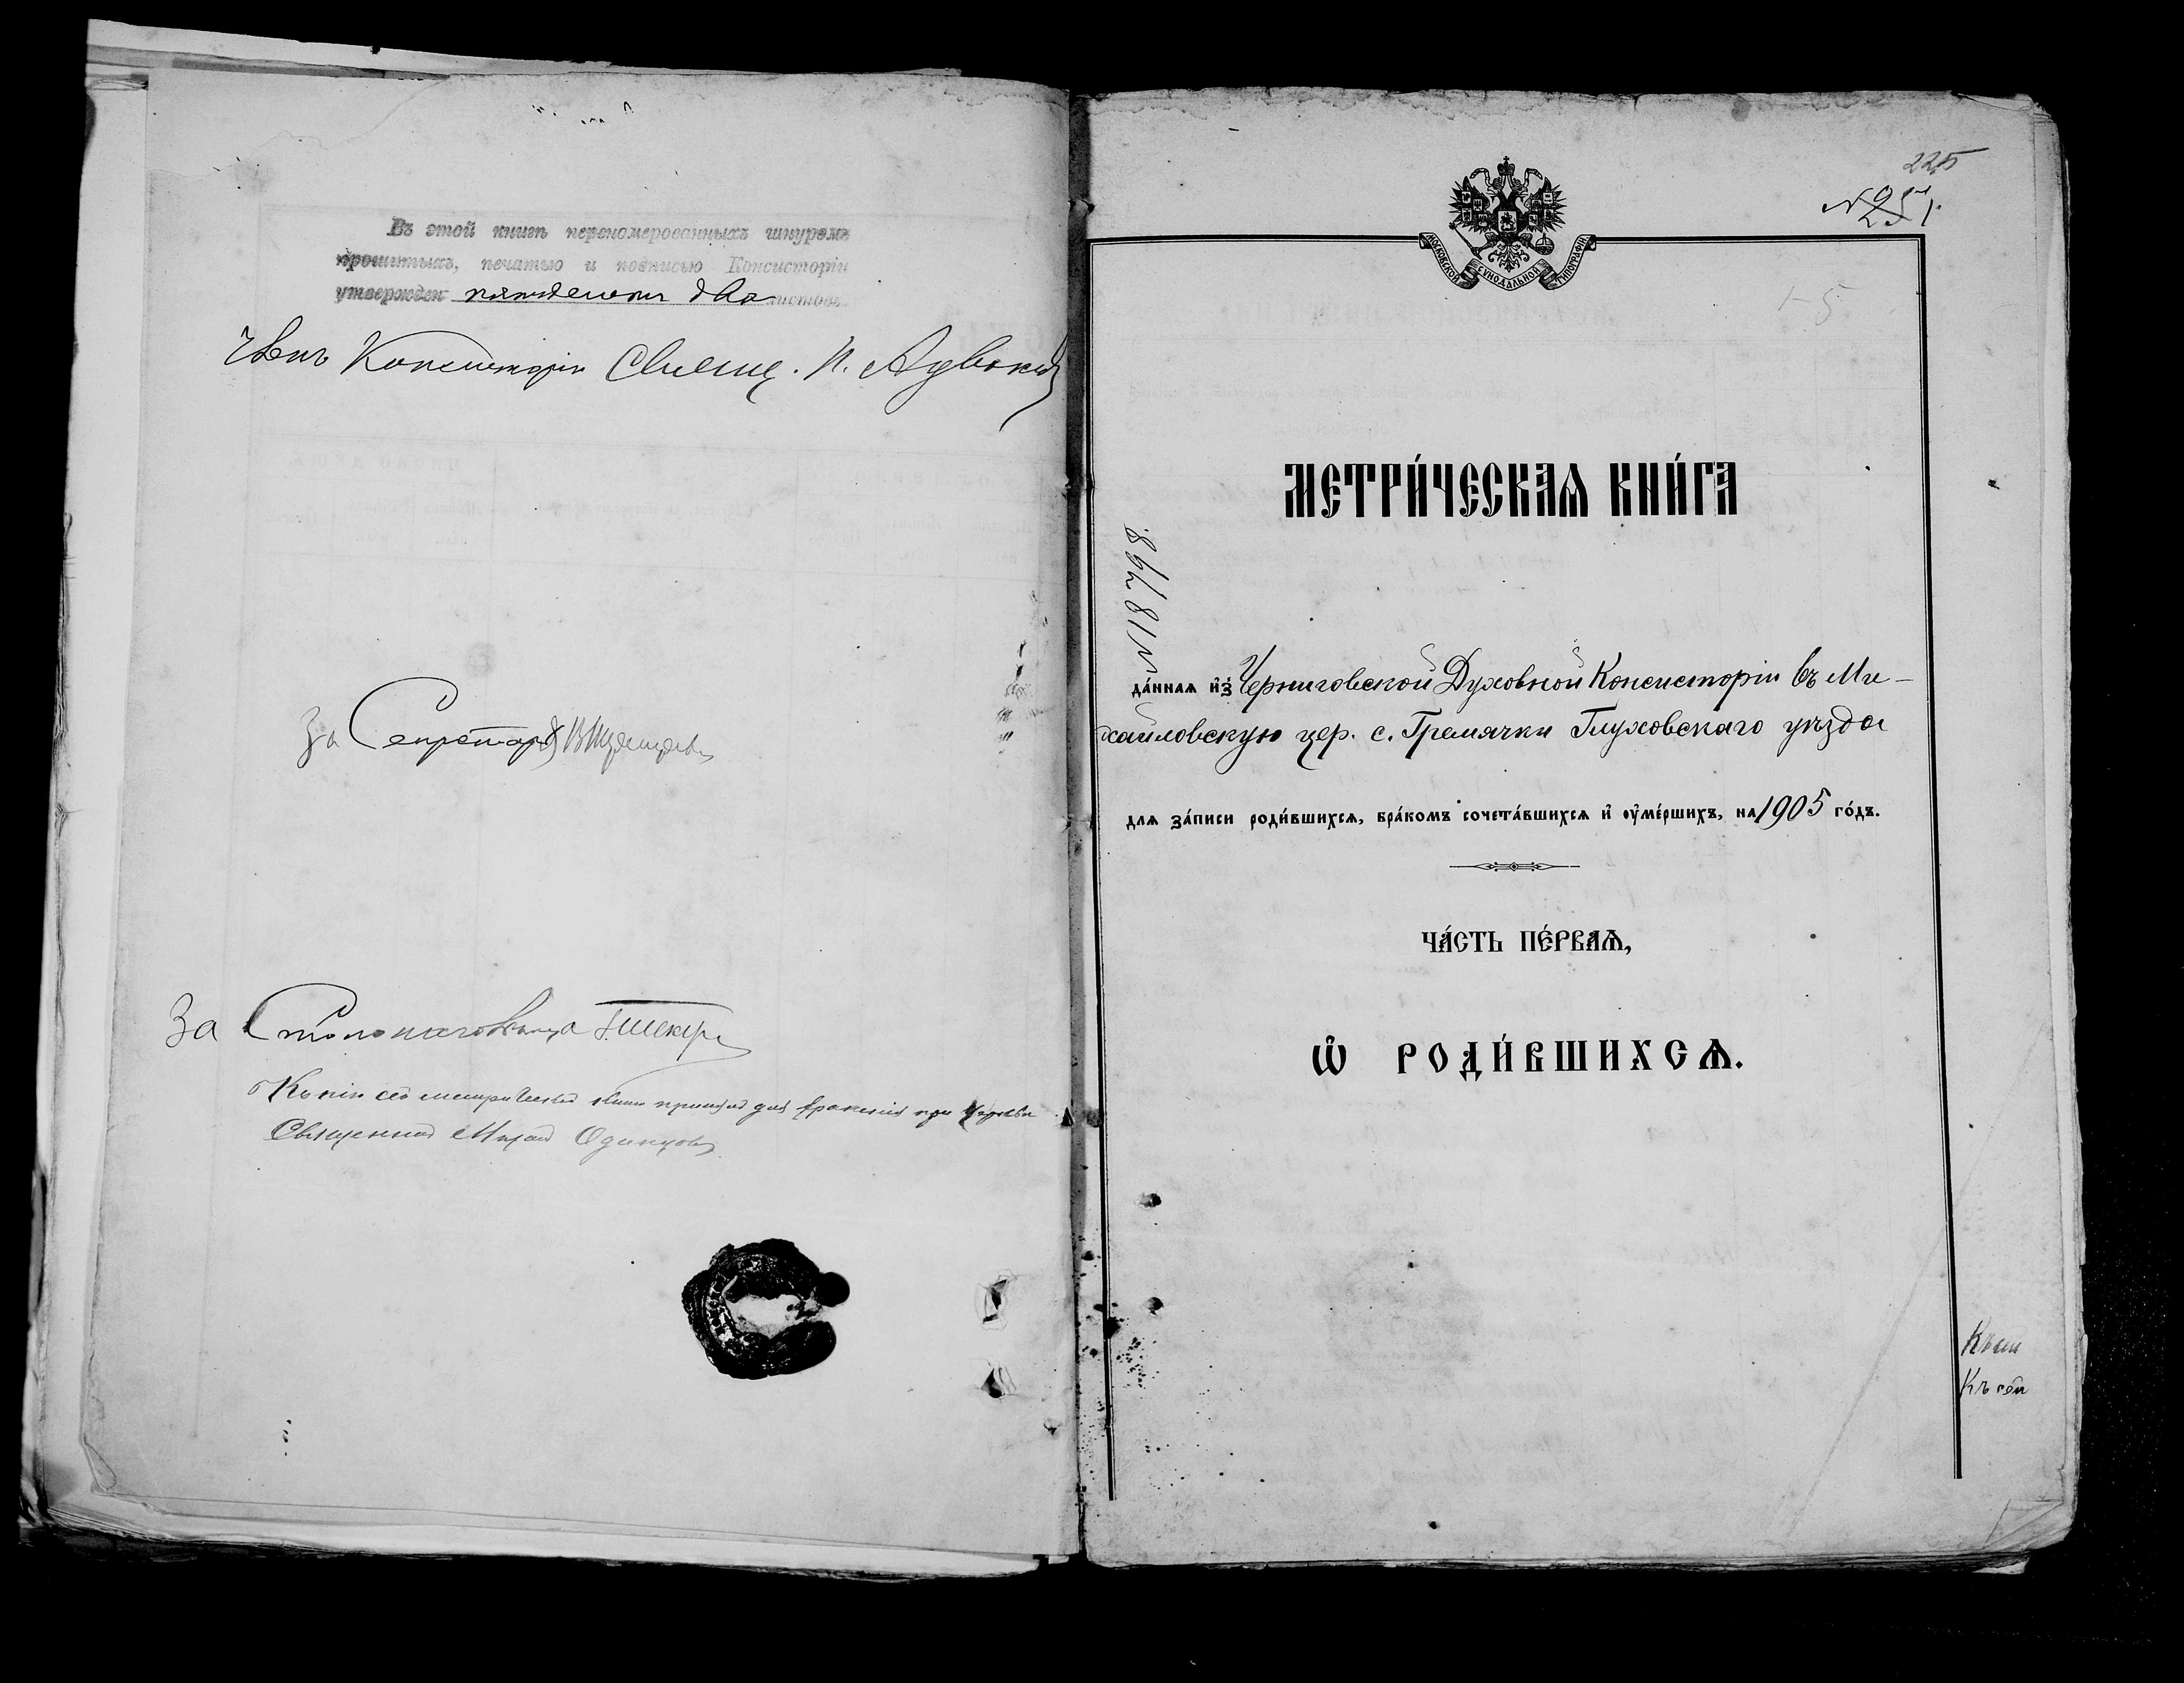 Въ этой книгѣ перенумерованныхъ шнуромъ
прошитыхъ, печатью и подписью Консисторіи
утвержден пятьдесятъ два листовъ
Членъ Консисторіи Свящ. П.
За Секретаря
За Столоначальника
Копія сей метрической книги для храненія при церкви
Священник Михаил Одинцов
225
№ 251
МОСКОВСКОЙ СѴНОДАЛЬНОЙ ТИПОГРАФІИ
1-5
МЕТРИ́ЧЕСКАѦ КНИ́ГА
№18798.
да́ннаѧ и҆з̾ Черниговской Духовной Консисторіи въ Ми-
хайловскую цер. с. Гремячки Глуховскаго уѣзда
для за́писи роди́вшихсѧ, бра́комъ сочета́вшихсѧ и҆ ᲂу҆ме́ршихъ, на 1905 го́дъ.
ЧА́СТЬ ПЕ́РВАѦ,
Ѡ҆ РОДИ́ВШИХСѦ.